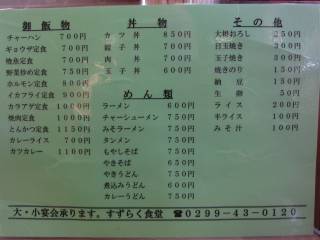 御飯物
チャーハン 700円
ギョウザ定食 700円
焼魚定食 700円
野菜炒め定食 750円
ホルモン定食 800円
イカフライ定食 900円
カラアゲ定食 1000円
焼肉定食 1000円
とんかつ定食 1150円
カレーライス 700円
カツカレー 1100円
丼物
カツ丼 850円
親子丼 700円
肉丼 700円
玉子丼 600円
めん類
ラーメン 600円
チャーシューメン 750円
みそラーメン 750円
タンメン 750円
もやしそば 750円
やきそば 650円
やきうどん 750円
煮込みうどん 600円
カレーうどん 750円
その他
大根おろし 250円
目玉焼き 300円
玉子焼き 300円
焼きのり 150円
納豆 150円
生卵 50円
ライス 200円
半ライス 100円
みそ汁 100円
大・小宴会承ります。すずらく食堂 ☎0299-43-0120